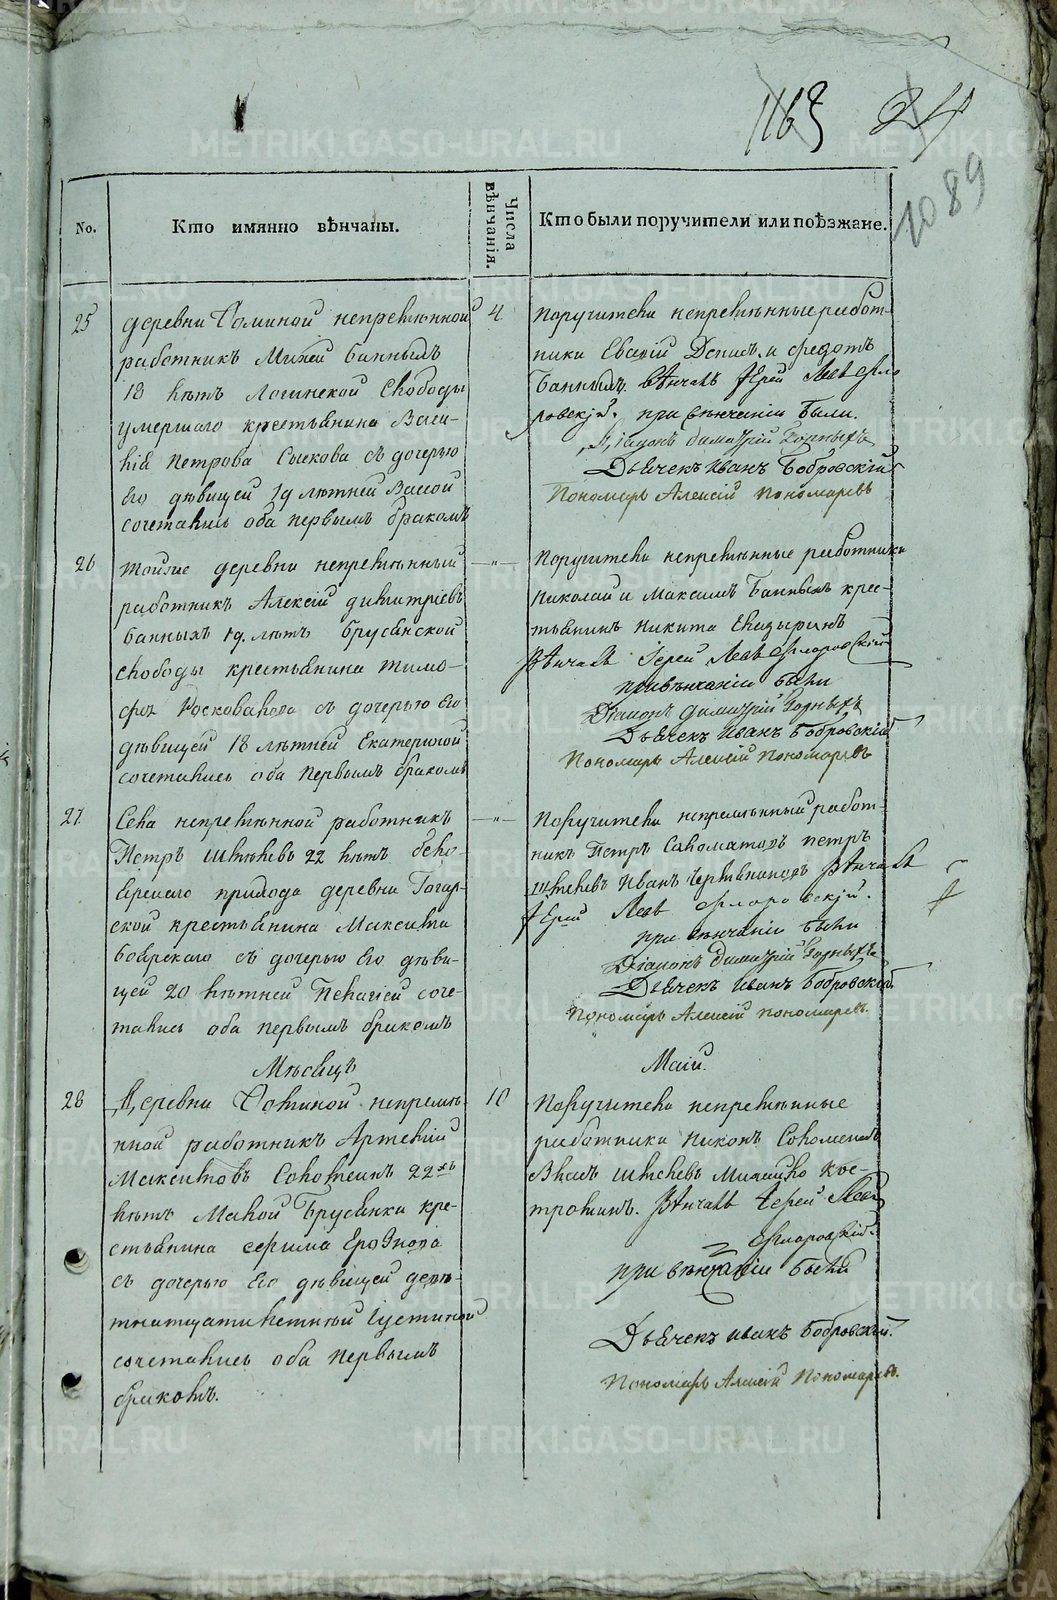 1163 24
1089
No.
Кто имянно вѣнчаны.
Числа вѣнчанія.
Кто были поручители или поѣзжане.
25
деревни Фоминой непремѣнной
работникъ Михей Банныхъ
18 лѣтъ Логинской слободы
умершаго крестьянина Васи-
лія Петрова Сыскова съ дочерью
его дѣвицей 19 лѣтней Вассой
сочетались оба первымъ бракомъ
4
Поручители непремѣнные работ-
ники Евсѣй Денисъ и Федотъ
Банныхъ. вѣнчалъ Іерей Левъ Фло
ровскій. при вѣнчаніи были.
Діаконъ Димитрій Горныхъ
Дьячекъ Иванъ Бобровскій
Пономарь Алексій Пономаревъ
26
тойже деревни непремѣнный
работникъ Алексій Димитріевъ
Банныхъ 19 лѣтъ Брусянской
слободы крестьянина Тимо-
фея съ дочерью его
дѣвицей 18 лѣтней Екатериной
сочетались оба первымъ бракомъ
— „ —
Поручители непремѣнные работники
Николай и Максимъ Банныхъ крес-
тьянинъ Никита
Вѣнчалъ Іерей Левъ Флоровскій
при вѣнчаніи были
Діаконъ Димитрій Горныхъ
Дьячекъ Иванъ Бобровскій
Пономарь Алексій Пономаревъ
27
Села непремѣнной работникъ
Петръ Шмелевъ 22 лѣтъ Бело-
ярскаго прихода деревни Гагар-
ской крестьянина Максима
Боярскаго съ дочерью его дѣви-
цей 20 лѣтней Пелагіей соче-
тались оба первымъ бракомъ
— „ —
Поручители непремѣнный работ-
никъ Петръ Саломатовъ Петръ
Шмелевъ Иванъ вѣнчалъ
Іерей Левъ Флоровскій.
при вѣнчаніи были
Діаконъ Димитрій Горныхъ
Дьячекъ Иванъ Бобровскій.
Пономарь Алексій Пономаревъ.
Мѣсяцъ
Маій.
28
Деревни Фоминой непремѣ-
нной работникъ Артемій
Максимовъ 22хъ
лѣтъ Малой Брусянки кре-
стьянина Ефима
съ дочерью его дѣвицей девят-
надцати лѣтней Іустиной
сочетались оба первымъ
бракомъ.
10
Поручители непремѣнные
работники Никонъ
Шмелевъ Кос-
троминъ. Вѣнчалъ Іерей Левъ
Флоровскій.
при вѣнчаніи были
Дьячекъ Иванъ Бобровскій.
Пономарь Алексій Пономаревъ.
METRIKI.GASO-URAL.RU